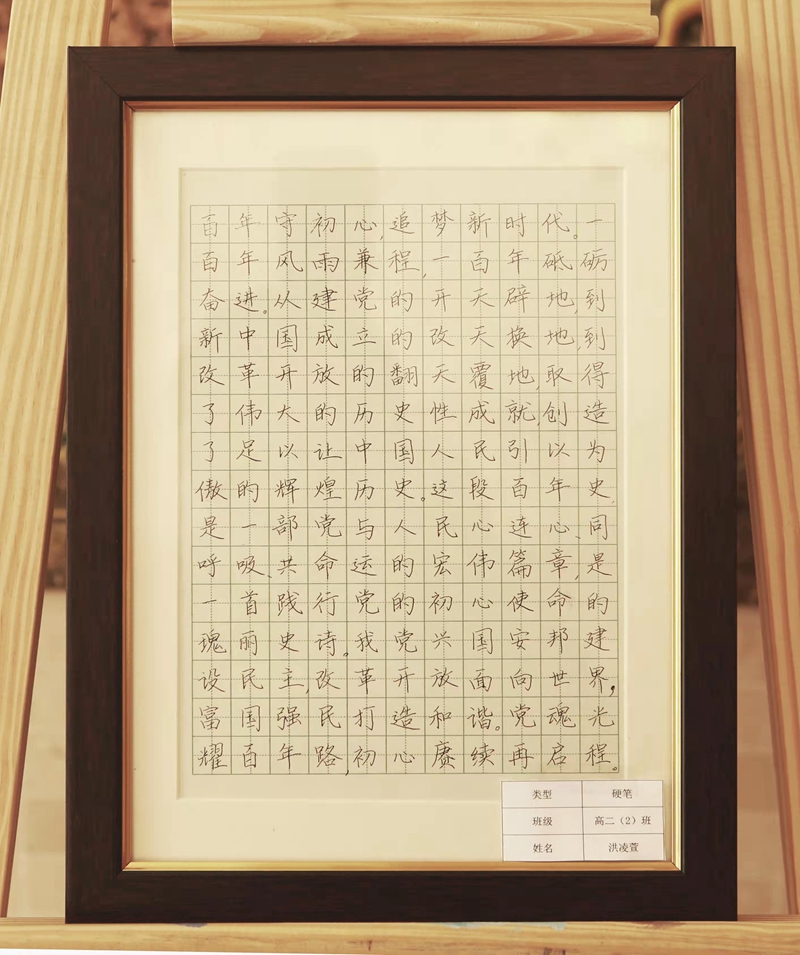 百年守初心，追梦新时代。一
百年风雨兼程，一百年砥砺
奋进。从建党的开天辟地，到
新中国成立的改天换地，到
改革开放的翻天覆地，取得
了伟大的历史性成就，创造
了足以让中国人民引以为
傲的辉煌历史。这段百年史，
是一部党与人民心连心、同
呼吸、共命运的宏伟篇章，是
一首践行党的初心使命的
瑰丽史诗。我党兴国安邦建
设民主，改革开放面向世界，
富国强民打造和谐。党魂光
耀百年路，初心赓续再启程。
类型 硬笔
班级 高二（2）班
姓名 洪凌萱